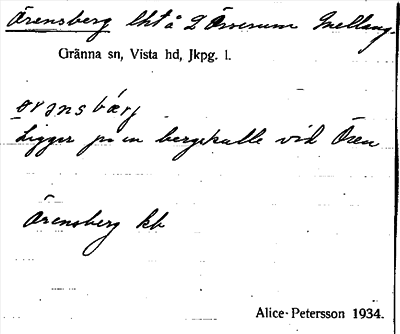 Örensberg lht å 2 Örserum Mellang.
Gränna sn, Vista hd, Jkpg. l.
ørənsbærj
Ligger på en bergskulle vid Ören
Örensberg kb
Alice Petersson 1934.